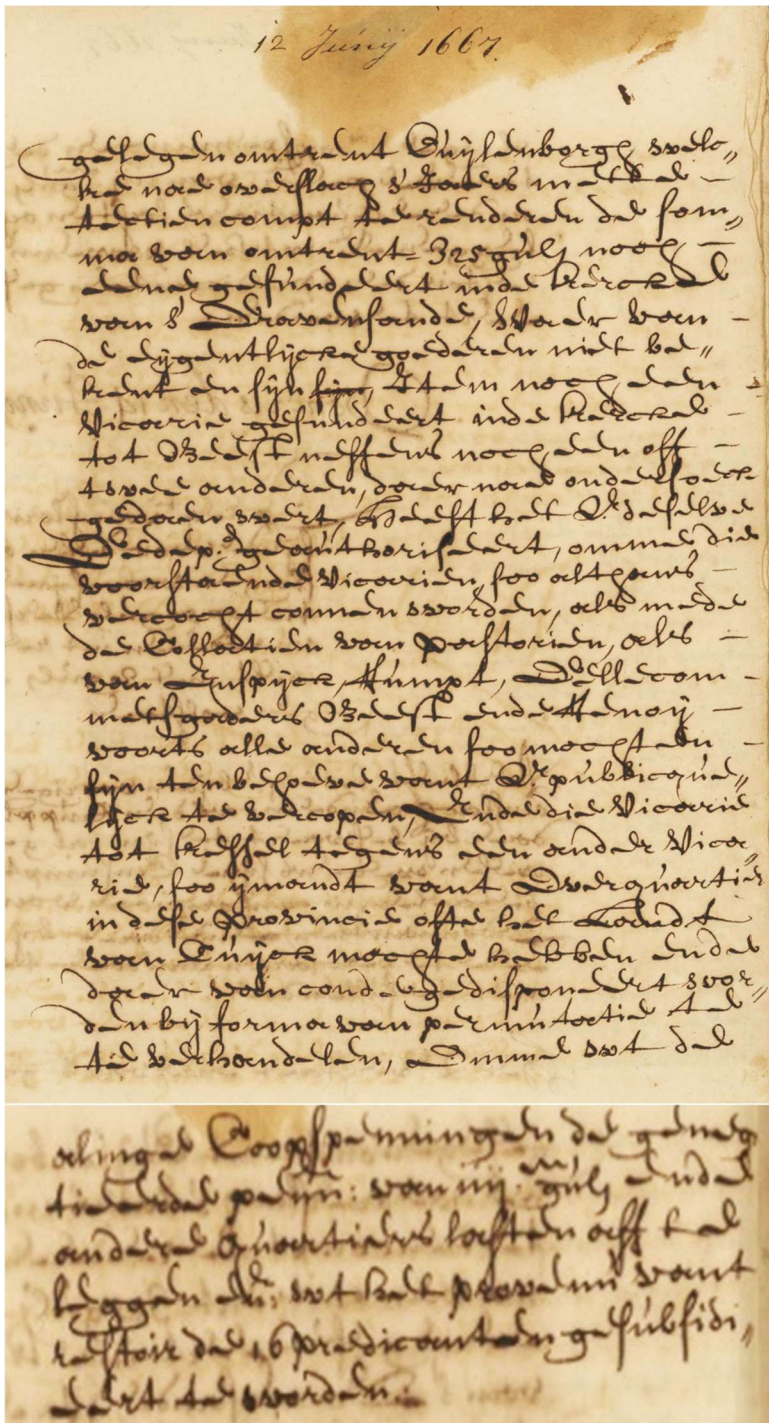 12 Junij 1667.
gelegen omtrent Cuijlenborgh, welc„
ke nae overslach s' Jaers met de
tectien compt te renderen de som„
ma van omtrent 325 gulj noch
eene gefundeert inde kercke
van s' Gravensande, Waer van
de eygentlycke goederen niet be„
kent en syn, Item noch een
Vicarie gefundeert inde kercke
tot Beest neffens noch een off
twee anderen, daer nae ondersoeck
gedaen wert, Heeft het Qr. deselve
Gedep.de geauthoriseert, omme die
voorstaende Vicarien, soo althans
vercocht connen worden, als mede
de Collatien van pastorien, als
van Enspyck, Rumpt, Gellecom
metsgaders Beest ende Renoij
voorts alle anderen soo mochten
syn ten behoeve vant Qr. publicque„
lyck te vercopen, Ende die Vicarie
tot kessel tegens een ander Vica„
rie, soo ymandt vant Overquartier
in dese provincie ofte het Landt
van Cuyck mochte hebben ende
daer van conde gedisponeert wor„
den by forma van permutatie te
te verhandelen, Omme wt de
alinge Coopspenningen de geneg
tieerde penn: van iiij.m gulj ende
andere Quartiers lasten aff te
leggen en: wt het provenu vant
restoir de 16 predicanten gesubsidi„
eert te worden.